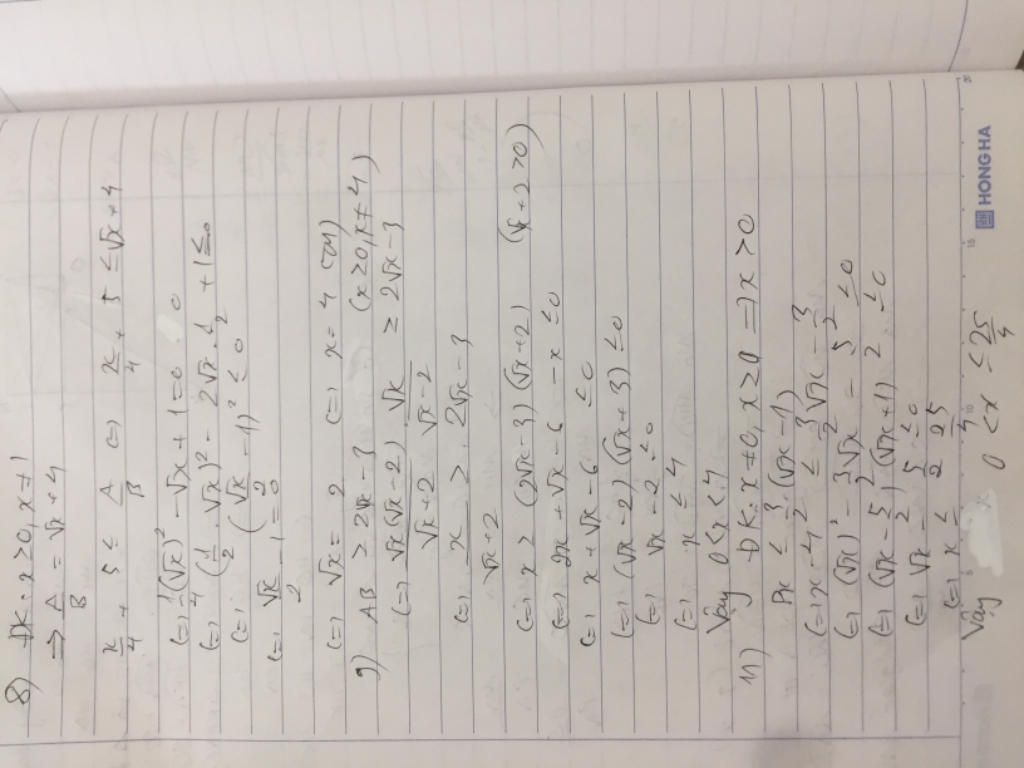 8) ĐK: x ≥ 0, x ≠ 1
⇒ A/B = √x + 4
x/4 + 5 ≤ A/B (=) x/4 + 5 ≤ √x + 4
(=) 1/4 (√x)² - √x + 1 = 0
(=) (1/2 . √x)² - 2√x . 1/2 + 1 ≤ 0
(=) (√x/2 - 1)² ≤ 0
(=) √x/2 - 1 = 0
(=) √x = 2 (=) x = 4 (TM)
9) AB ≥ 2√x - 3 (x ≥ 0, x ≠ 4)
(=) √x(√x - 2)/√x + 2 . √x/√x - 2 ≥ 2√x - 3
(=) x/√x + 2 ≥ 2√x - 3
(=) x ≥ (2√x - 3)(√x + 2) (√x + 2 > 0)
(=) 2x + √x - 6 - x ≤ 0
(=) x + √x - 6 ≤ 0
(=) (√x - 2)(√x + 3) ≤ 0
(=) √x - 2 ≤ 0
(=) x ≤ 4
Vậy 0 ≤ x < 4
11) ĐK: x ≠ 0, x ≥ 0 => x > 0
Px ≤ 3/2 (√x - 1)
(=) x - 4 ≤ 3/2 √x - 3/2
(=) (√x)² - 3/2 √x - 5/2 ≤ 0
(=) (√x - 5/2)(√x + 1) ≤ 0
(=) √x - 5/2 ≤ 0
(=) x ≤ 25/4
Vậy 0 < x ≤ 25/4
HONG HA
5
10
15
20